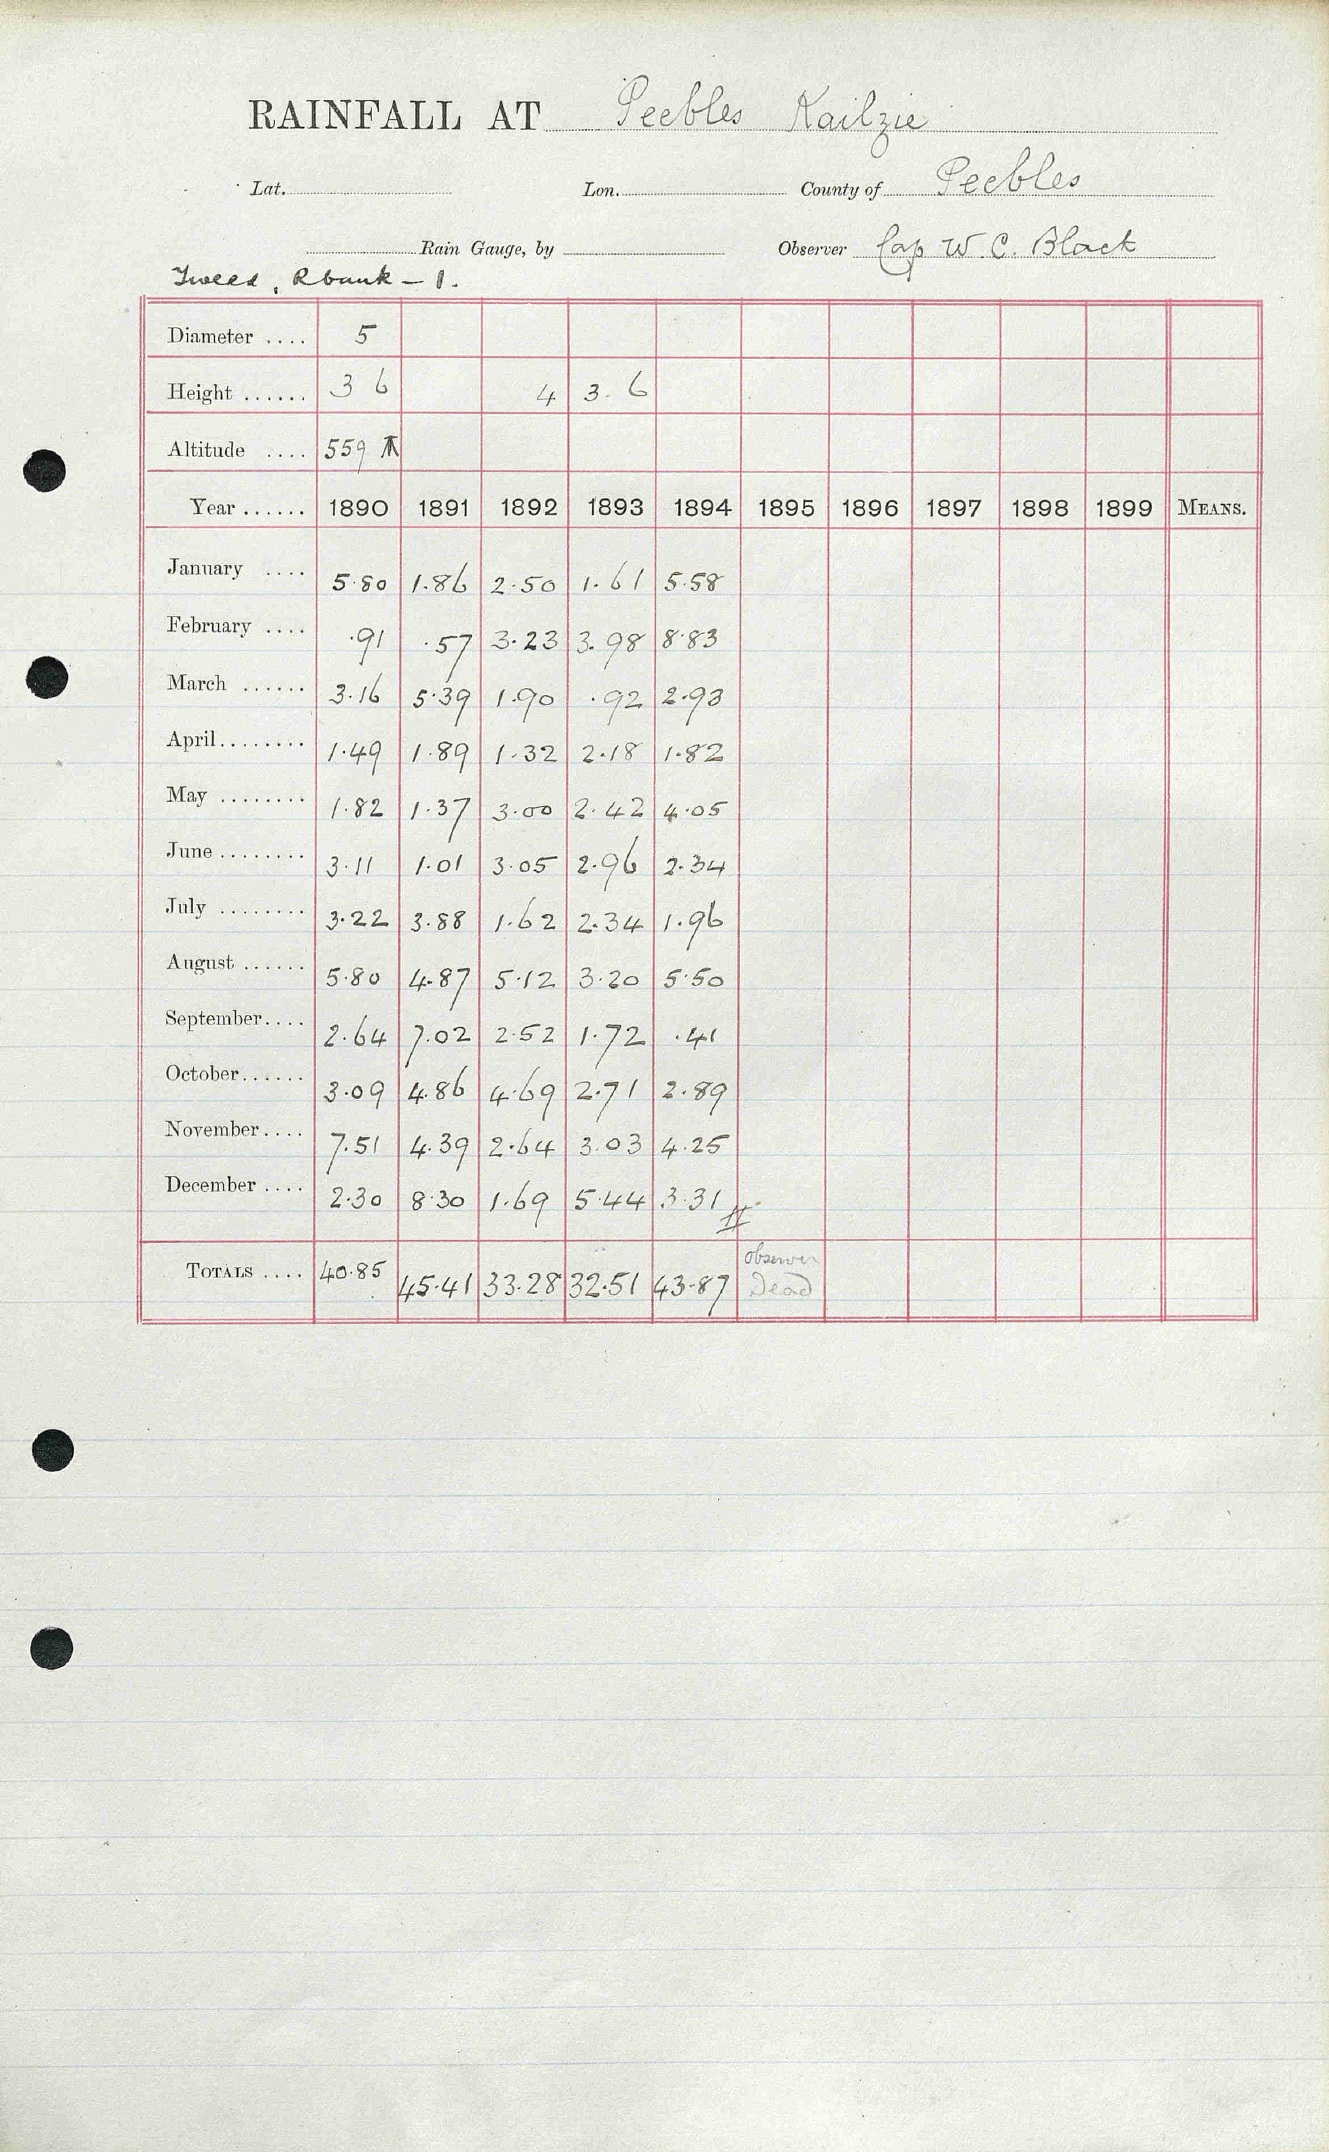 RAINFALL AT Peebles Kailzie
Lat. Lon. County of Peebles
Rain Gauge, by Observer Cap W. C. Black
Tweed, Rbank - 1.
Diameter .... 5
Height ...... 3 6 4 3. 6
Altitude .... 559
Year ...... 1890 1891 1892 1893 1894 1895 1896 1897 1898 1899 MEANS.
January .... 5.80 1.86 2.50 1.61 5.58
February .... .91 .57 3.23 3.98 8.83
March ...... 3.16 5.39 1.90 .92 2.93
April ........ 1.49 1.89 1.32 2.18 1.82
May ........ 1.82 1.37 3.00 2.42 4.05
June ........ 3.11 1.01 3.05 2.96 2.34
July ........ 3.22 3.88 1.62 2.34 1.96
August ...... 5.80 4.87 5.12 3.20 5.50
September .... 2.64 7.02 2.52 1.72 .41
October ...... 3.09 4.86 4.69 2.71 2.89
November .... 7.51 4.39 2.64 3.03 4.25
December .... 2.30 8.30 1.69 5.44 3.31
TOTALS .... 40.85 45.41 33.28 32.51 43.87 Observer
Dead